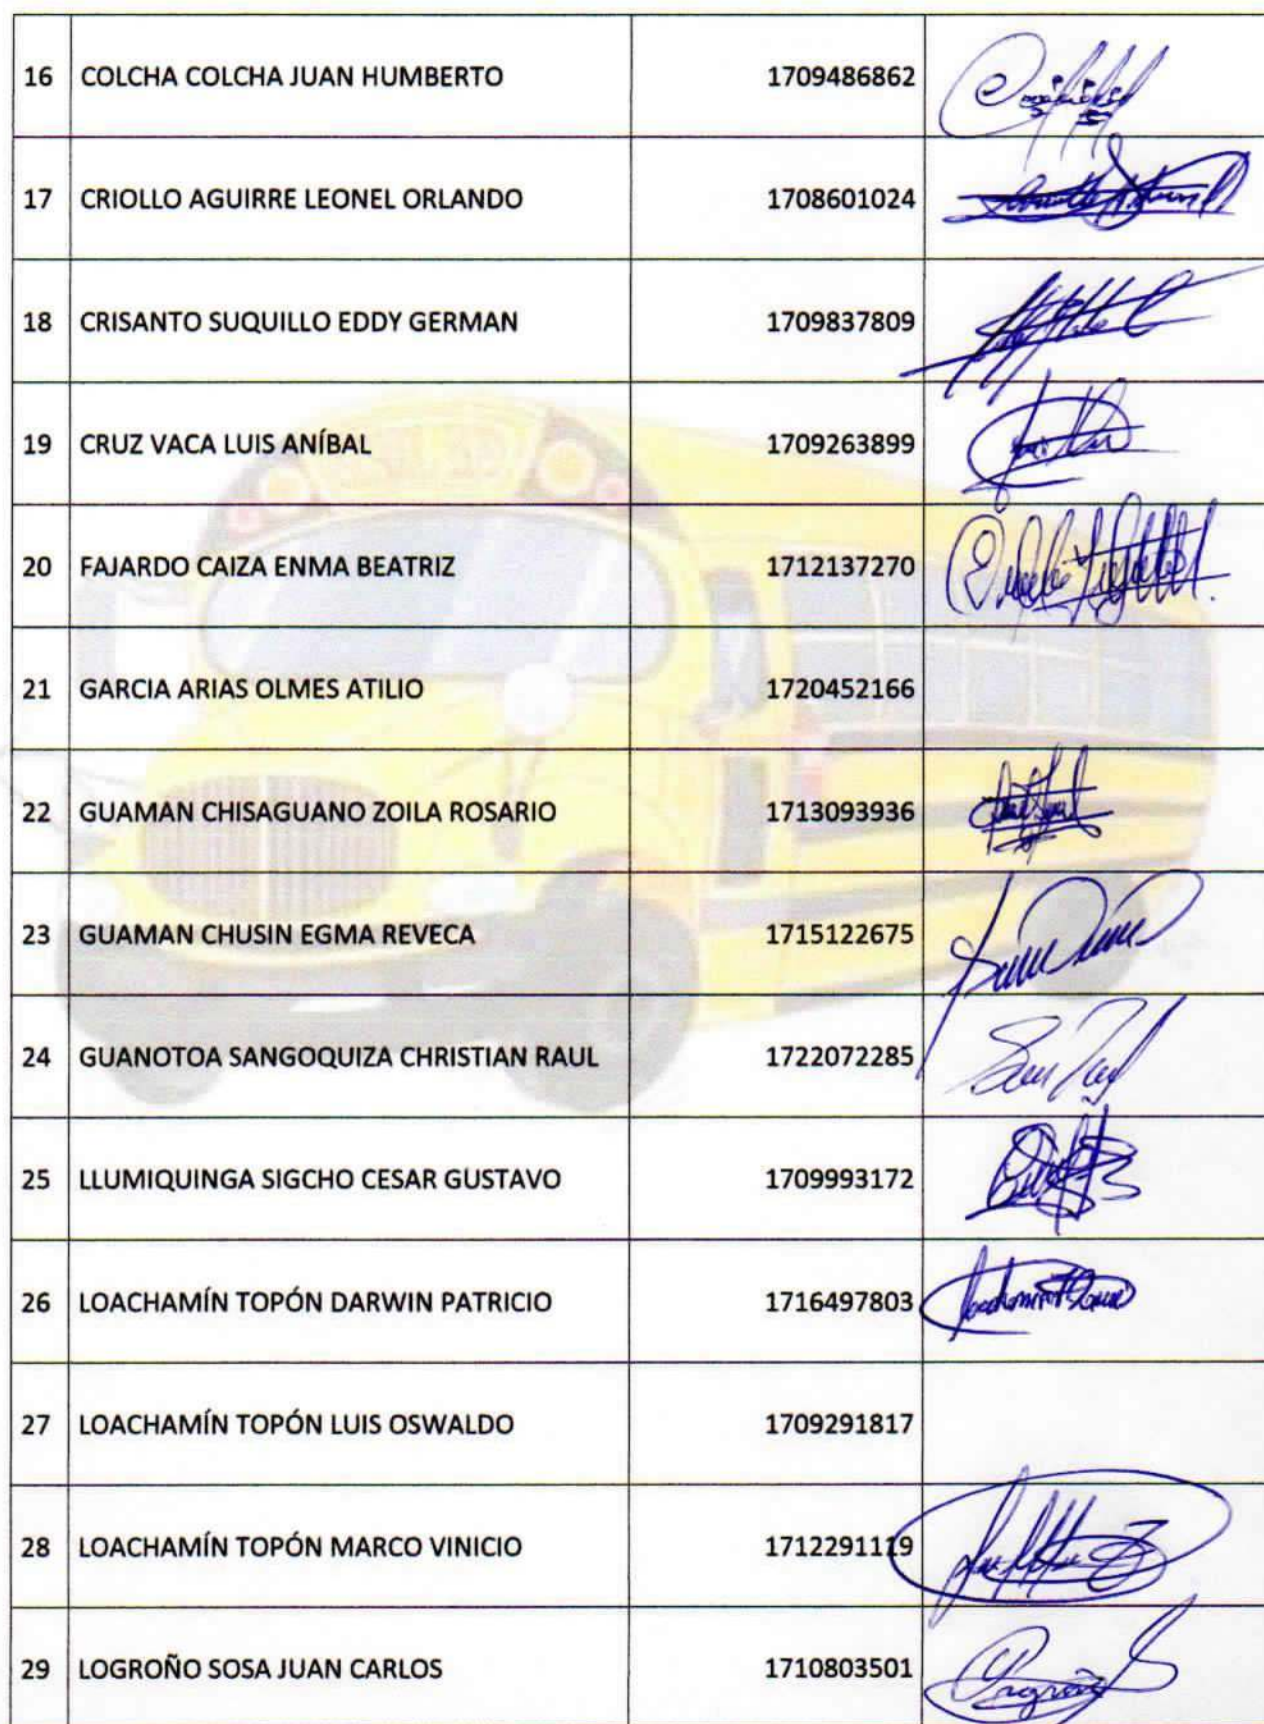 16 COLCHA COLCHA JUAN HUMBERTO 1709486862
17 CRIOLLO AGUIRRE LEONEL ORLANDO 1708601024
18 CRISANTO SUQUILLO EDDY GERMAN 1709837809
19 CRUZ VACA LUIS ANÍBAL 1709263899
20 FAJARDO CAIZA ENMA BEATRIZ 1712137270
21 GARCIA ARIAS OLMES ATILIO 1720452166
22 GUAMAN CHISAGUANO ZOILA ROSARIO 1713093936
23 GUAMAN CHUSIN EGMA REVECA 1715122675
24 GUANOTOA SANGOQUIZA CHRISTIAN RAUL 1722072285
25 LLUMIQUINGA SIGCHO CESAR GUSTAVO 1709993172
26 LOACHAMÍN TOPÓN DARWIN PATRICIO 1716497803
27 LOACHAMÍN TOPÓN LUIS OSWALDO 1709291817
28 LOACHAMÍN TOPÓN MARCO VINICIO 1712291119
29 LOGROÑO SOSA JUAN CARLOS 1710803501